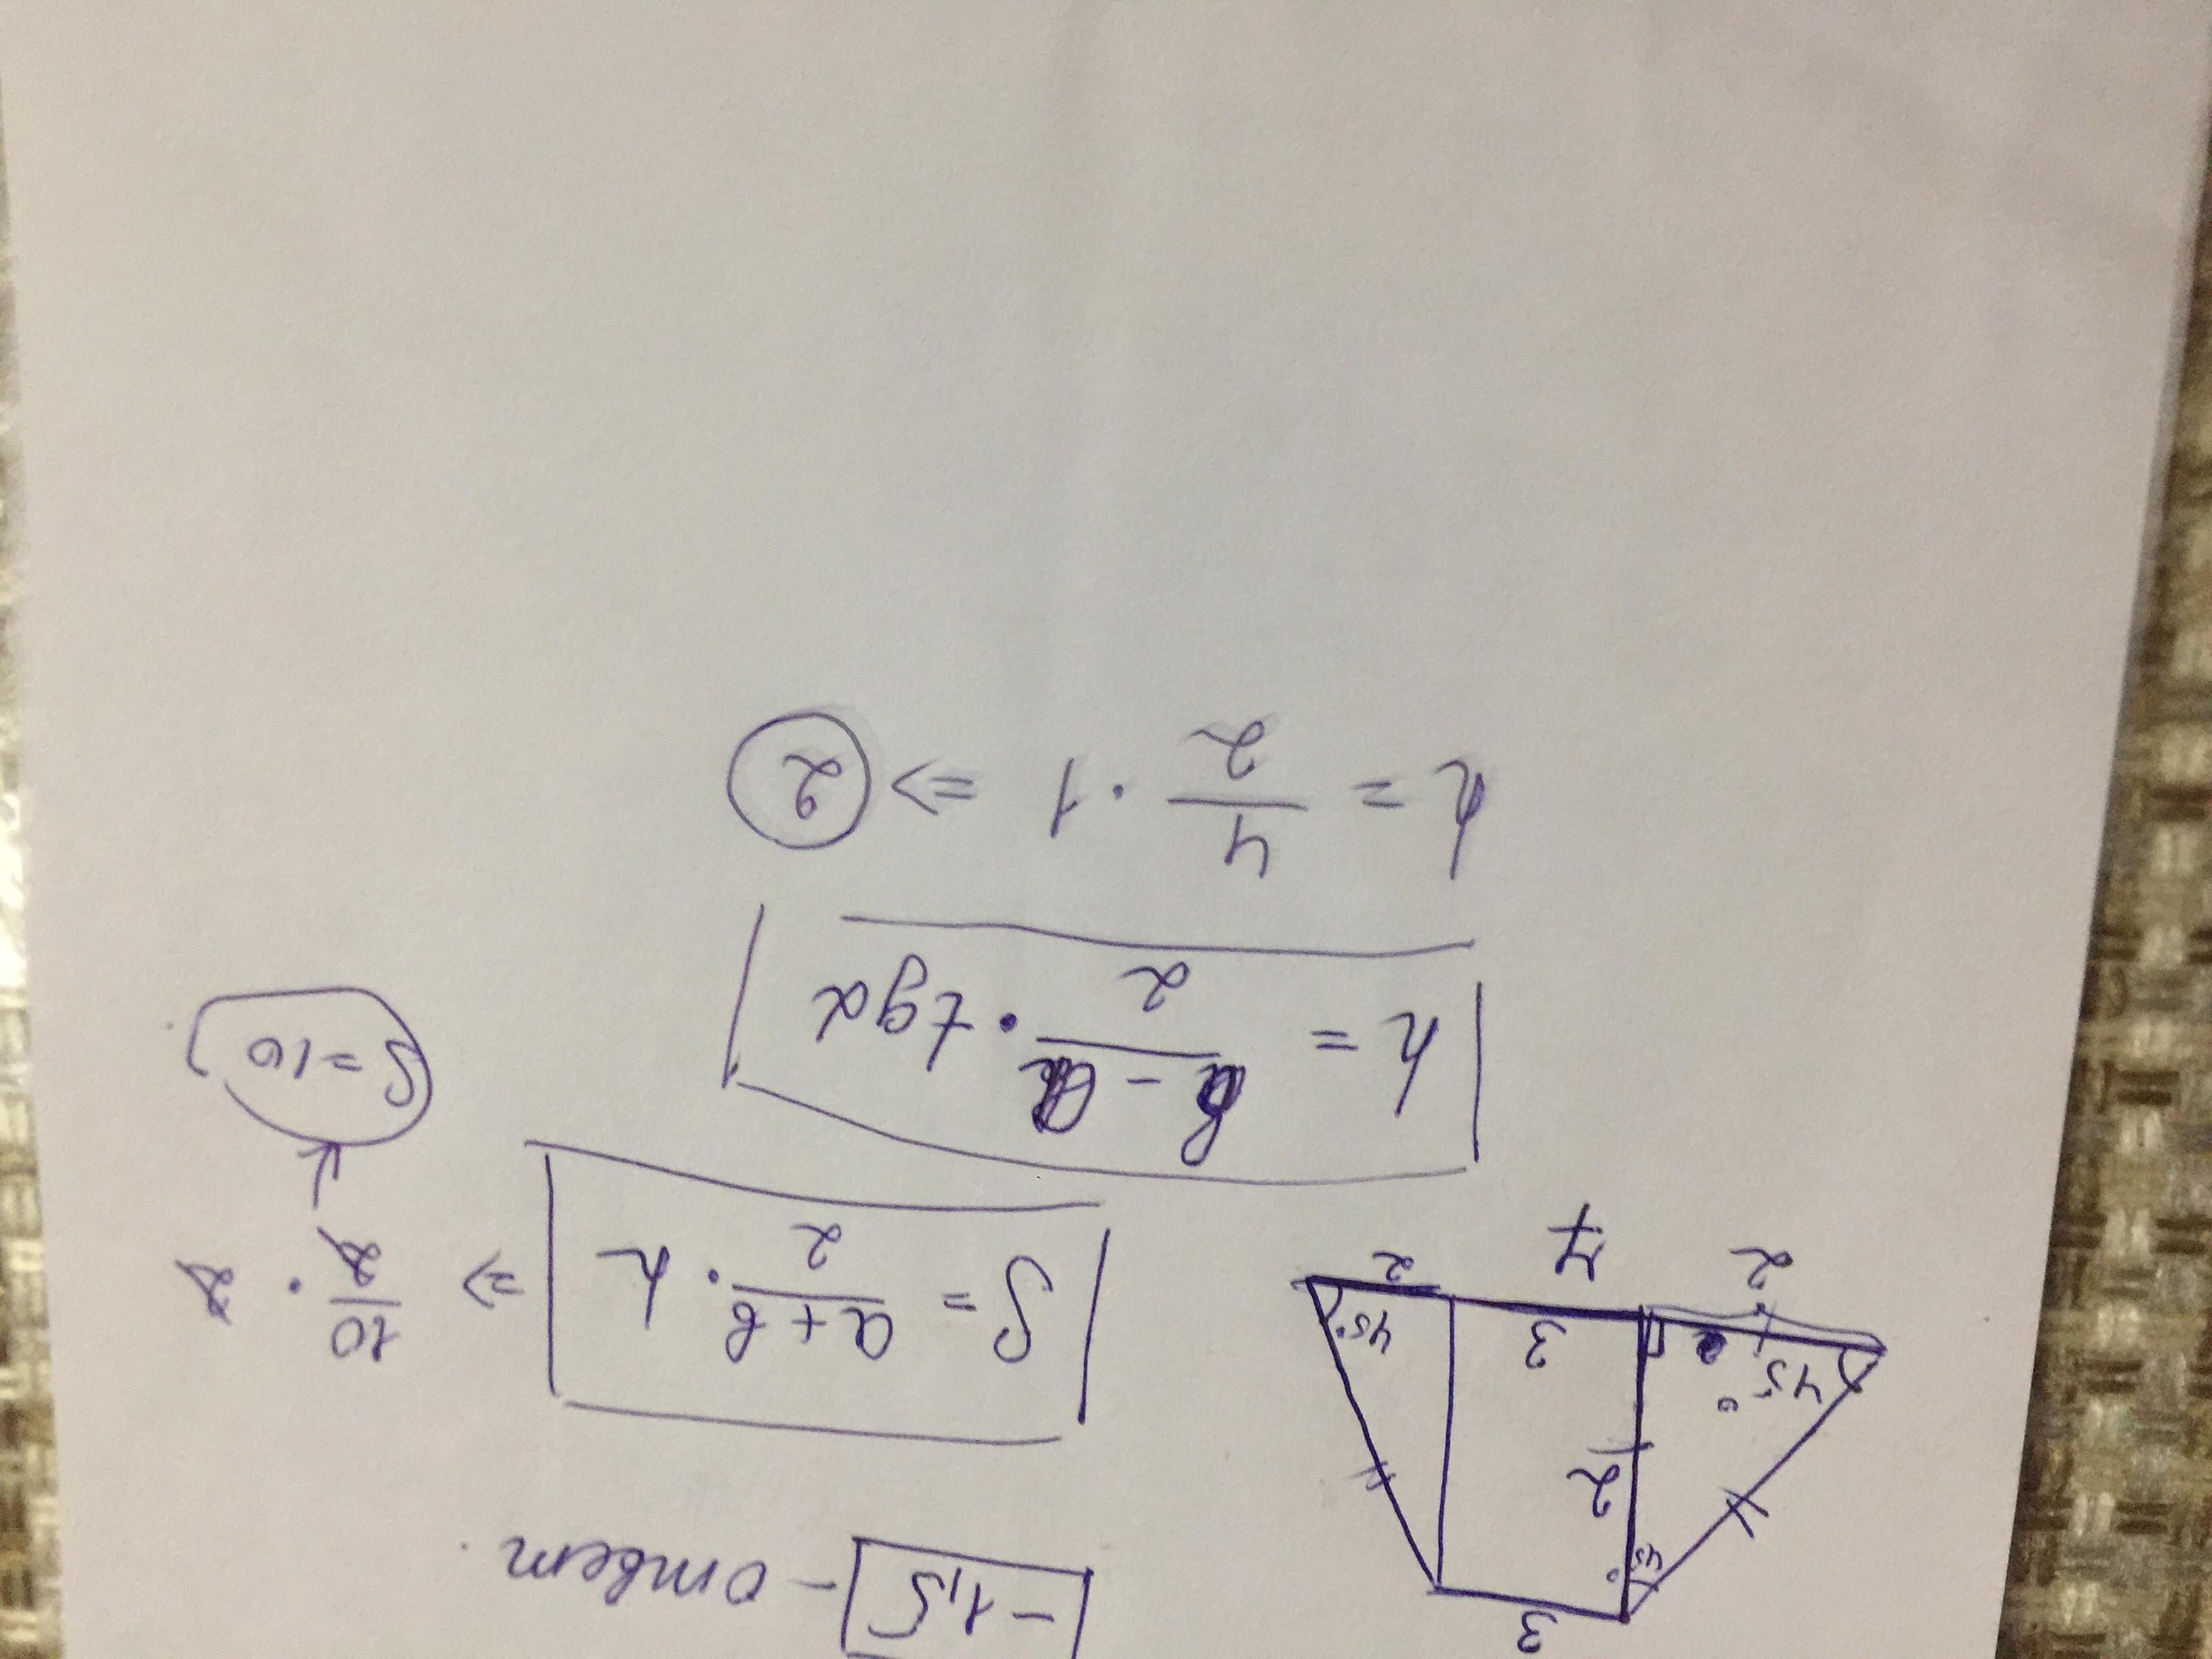 -1,5 - ответ.
3
45°
2
45°
3
45°
2
7
2
S = a+b/2 · h => 10/2 · 2
S=10
h = b-a/2 · tgα
h = 4/2 · 1 => 2